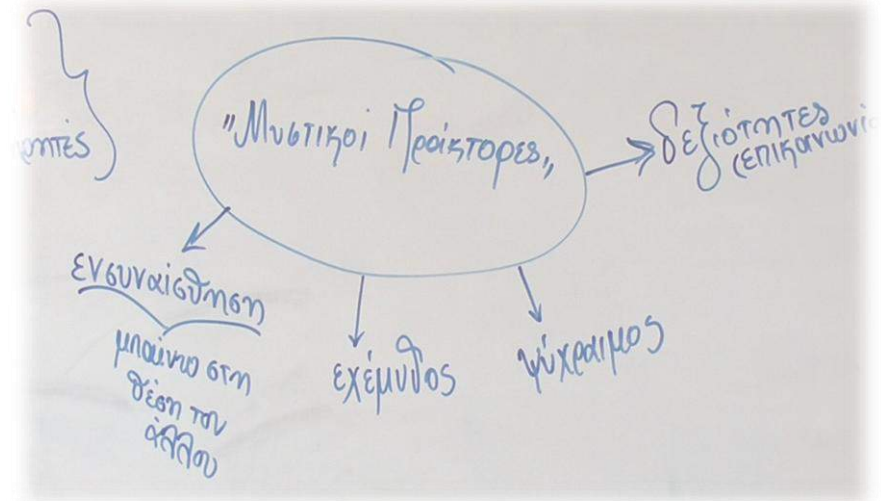 "Μυστικοί Πράκτορες"
δεξιότητες
(επικοινωνί
ενσυναίσθηση
μπαίνω στη
θέση του
άλλου
εχέμυθος
ψύχραιμος